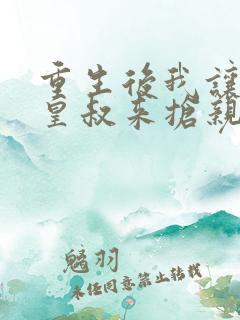 重生後我讓
皇叔來搶親
鬽羽
未經同意禁止轉載